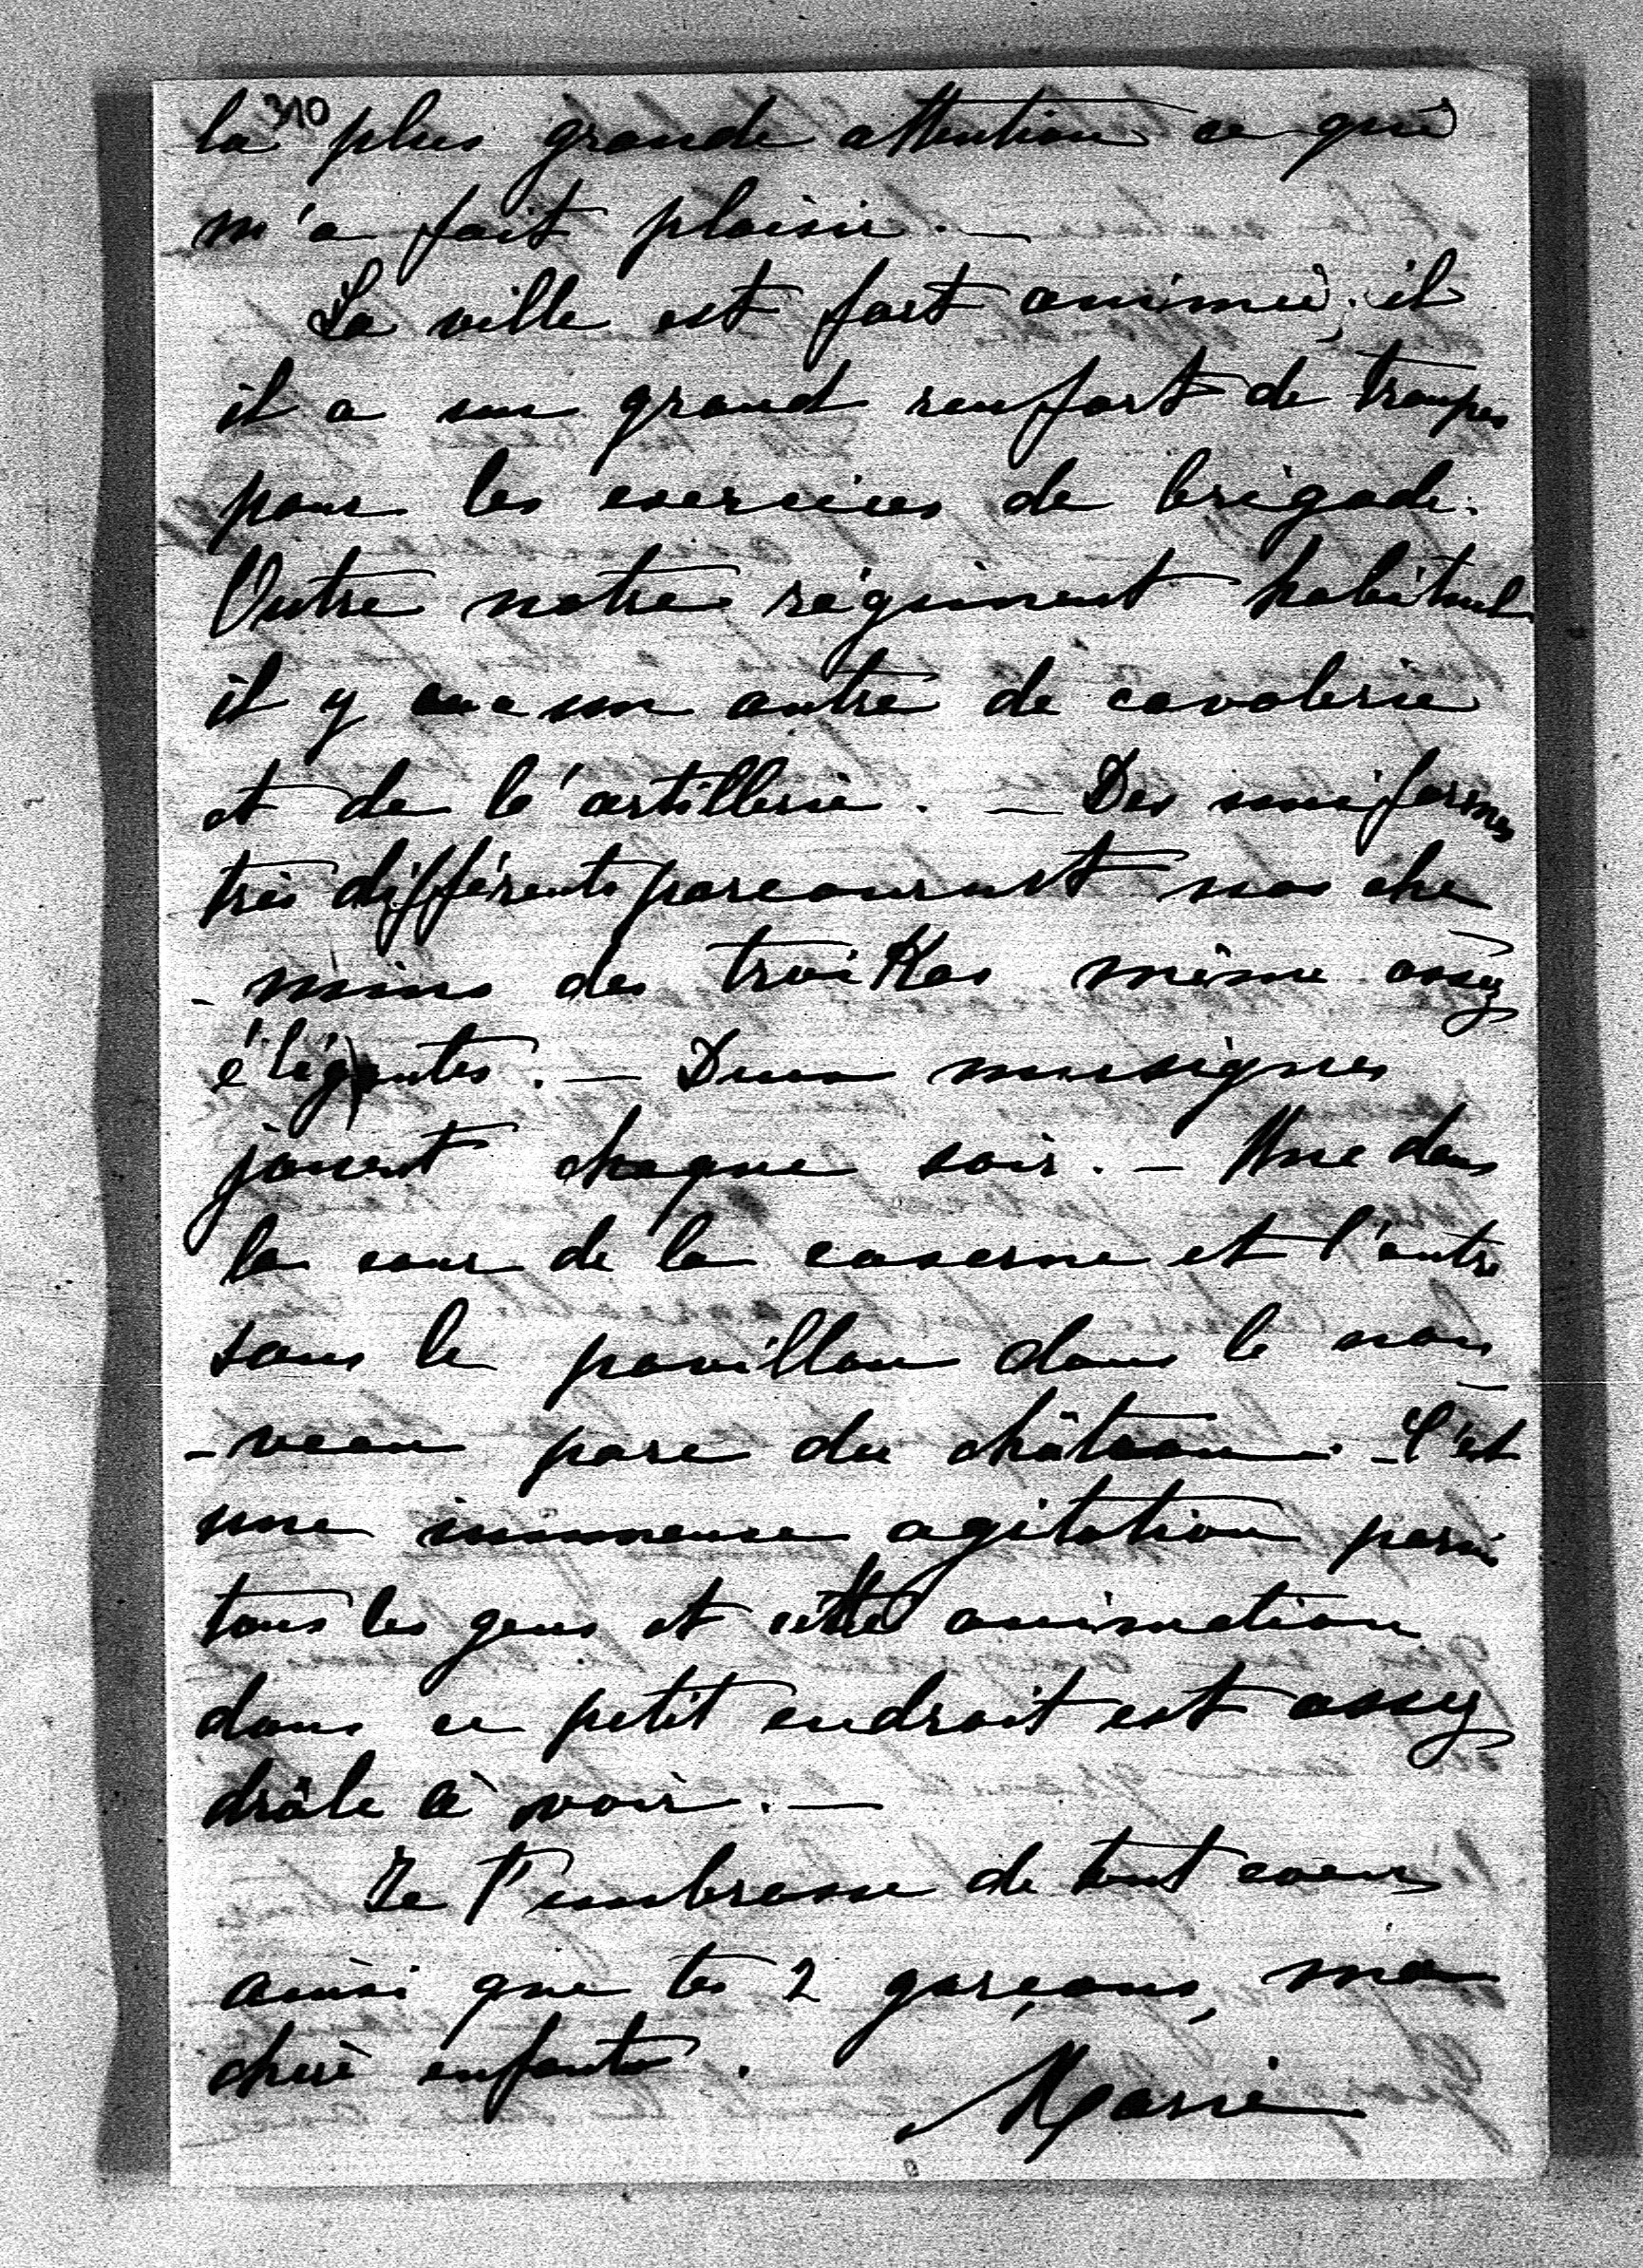 310
la plus grande attention ce qui
m'a fait plaisir. —
La ville est fort animée; il
il a un grand renfort de troupes
pour les exercices de brigade.
Outre notre régiment habituel
il y a un autre de cavalerie
et de l'artillerie. — Des uniformes
très différents parcourent nos che
- mins des troikas même assez
élégantes. — Deux musiques
jouent chaque soir. — Une dans
la cour de la caserne et l'autre
sous le pavillon dans le nou
- veau parc du château. - C'est
une immense agitation parmi
tous les gens et cette animation
dans ce petit endroit est assez
drôle à voir. —
Je t'embrasse de tout coeur
ainsi que tes 2 garçons, ma
chère enfant.
Marie